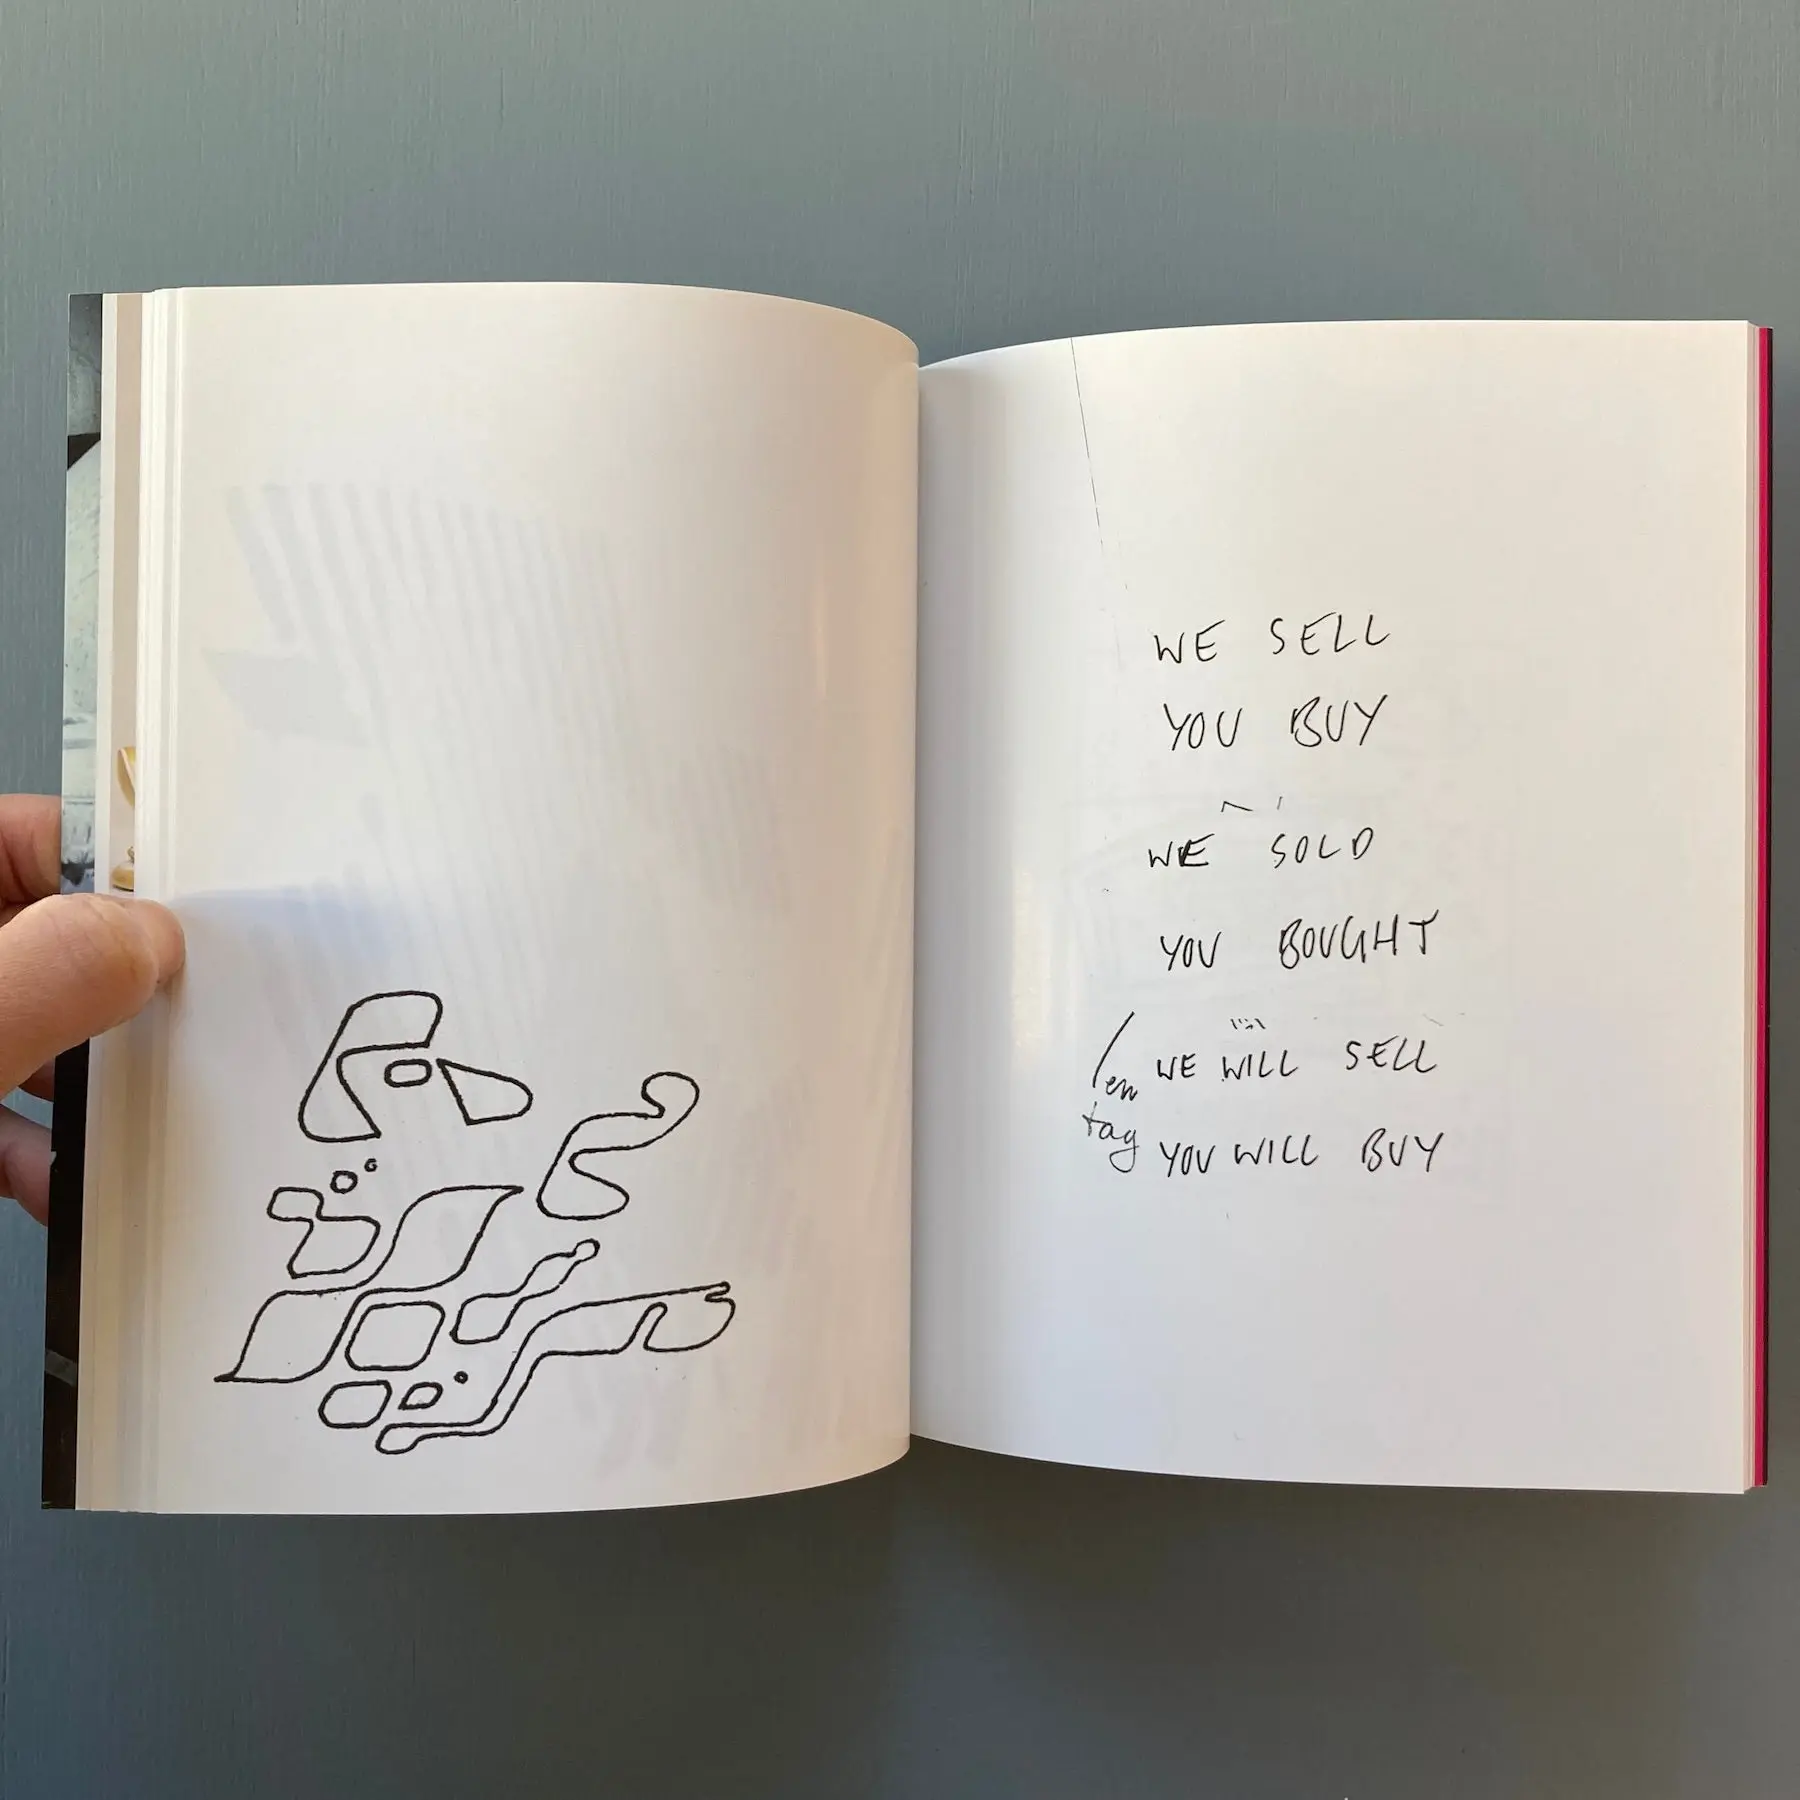 WE SELL
YOU BUY
WE SOLD
YOU BOUGHT
WE WILL SELL
en
tag
YOU WILL BUY